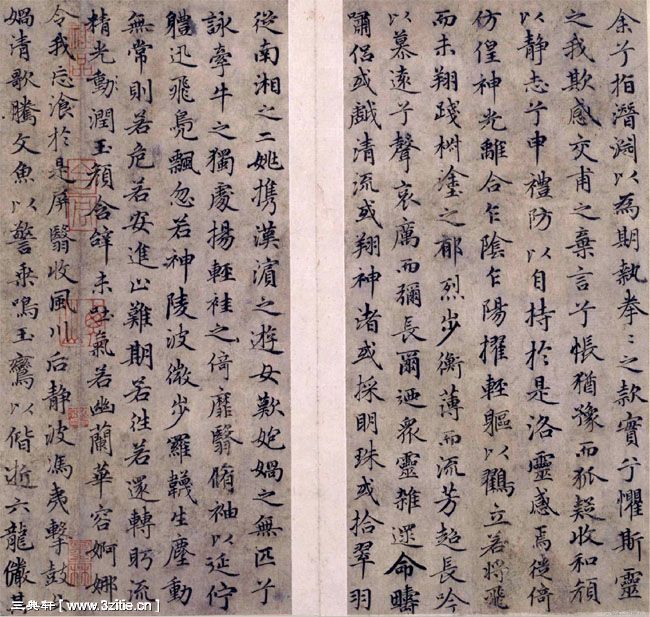 余兮指潛淵以為期執拳〻之款實兮懼斯靈
之我欺感交甫之棄言兮悵猶豫而狐疑收和顔
以静志兮申禮防以自持於是洛靈感焉徙倚
仿偟神光離合乍陰乍陽擢輕軀以鶴立若將飛
而未翔踐椒塗之郁烈步衡薄而流芳超長吟
以慕遠兮聲哀厲而彌長爾迺衆靈雜遝命疇
嘯侶或戲清流或翔神渚或採明珠或拾翠羽
從南湘之二姚攜漢濱之遊女歎匏媧之無匹兮
詠牽牛之獨處揚輕袿之倚靡翳脩袖以延佇
軆迅飛鳧飄忽若神陵波微步羅韈生塵動
無常則若危若安進止難期若往若還轉眄流
精光動潤玉顔含辝未吐氣若幽蘭華容婀娜
令我忘湌於是屏翳收風川后静波馮夷擊鼓
媧清歌騰文魚以警乗鳴玉鸞以偕逝六龍儼其
三典轩【www.3zitie.cn】